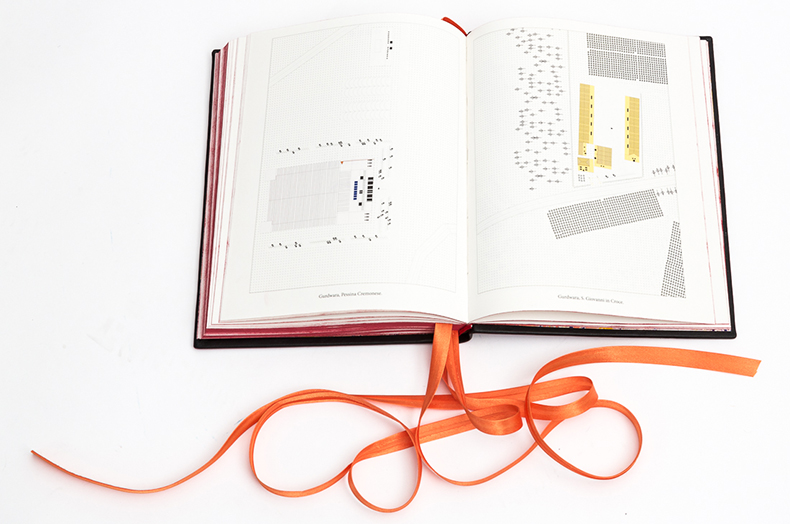 Gurdwara, Pessina Cremonese
Gurdwara, S. Giovanni in Croce